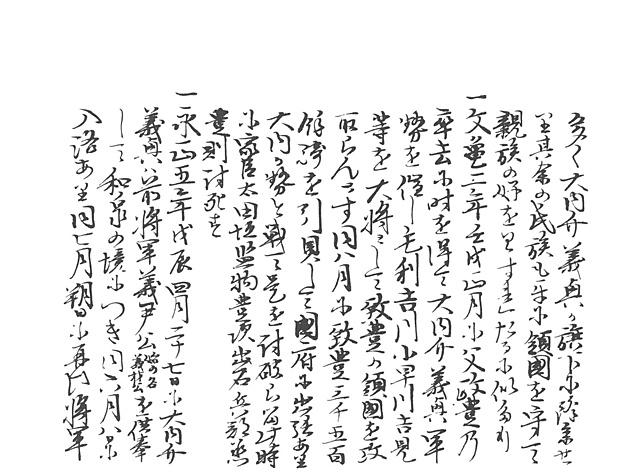 多く大内介義興の旗下に降系せ
り其余の氏族も牛に領國を守りて
親族の好をわすれたるに似たり
一文龜二年壬戌正月に父政豊乃
卒去に時を得て大内介義興軍
勢を催し毛利吉川小早川吉見
等を大將として致豊の領國を攻
取らんとす同八月に致豊三千五百
余騎を引具して國府に出張あり
大内が勢と戰て是を討破らる此時
に家臣太田垣監物豊次出石兵部
豊則討死す
一永正五年戊辰四月二十七日に大内介
義興公前將軍義尹公を供奉
して和泉の境につき同六月八日
入洛あり同七月朔日に再任將軍